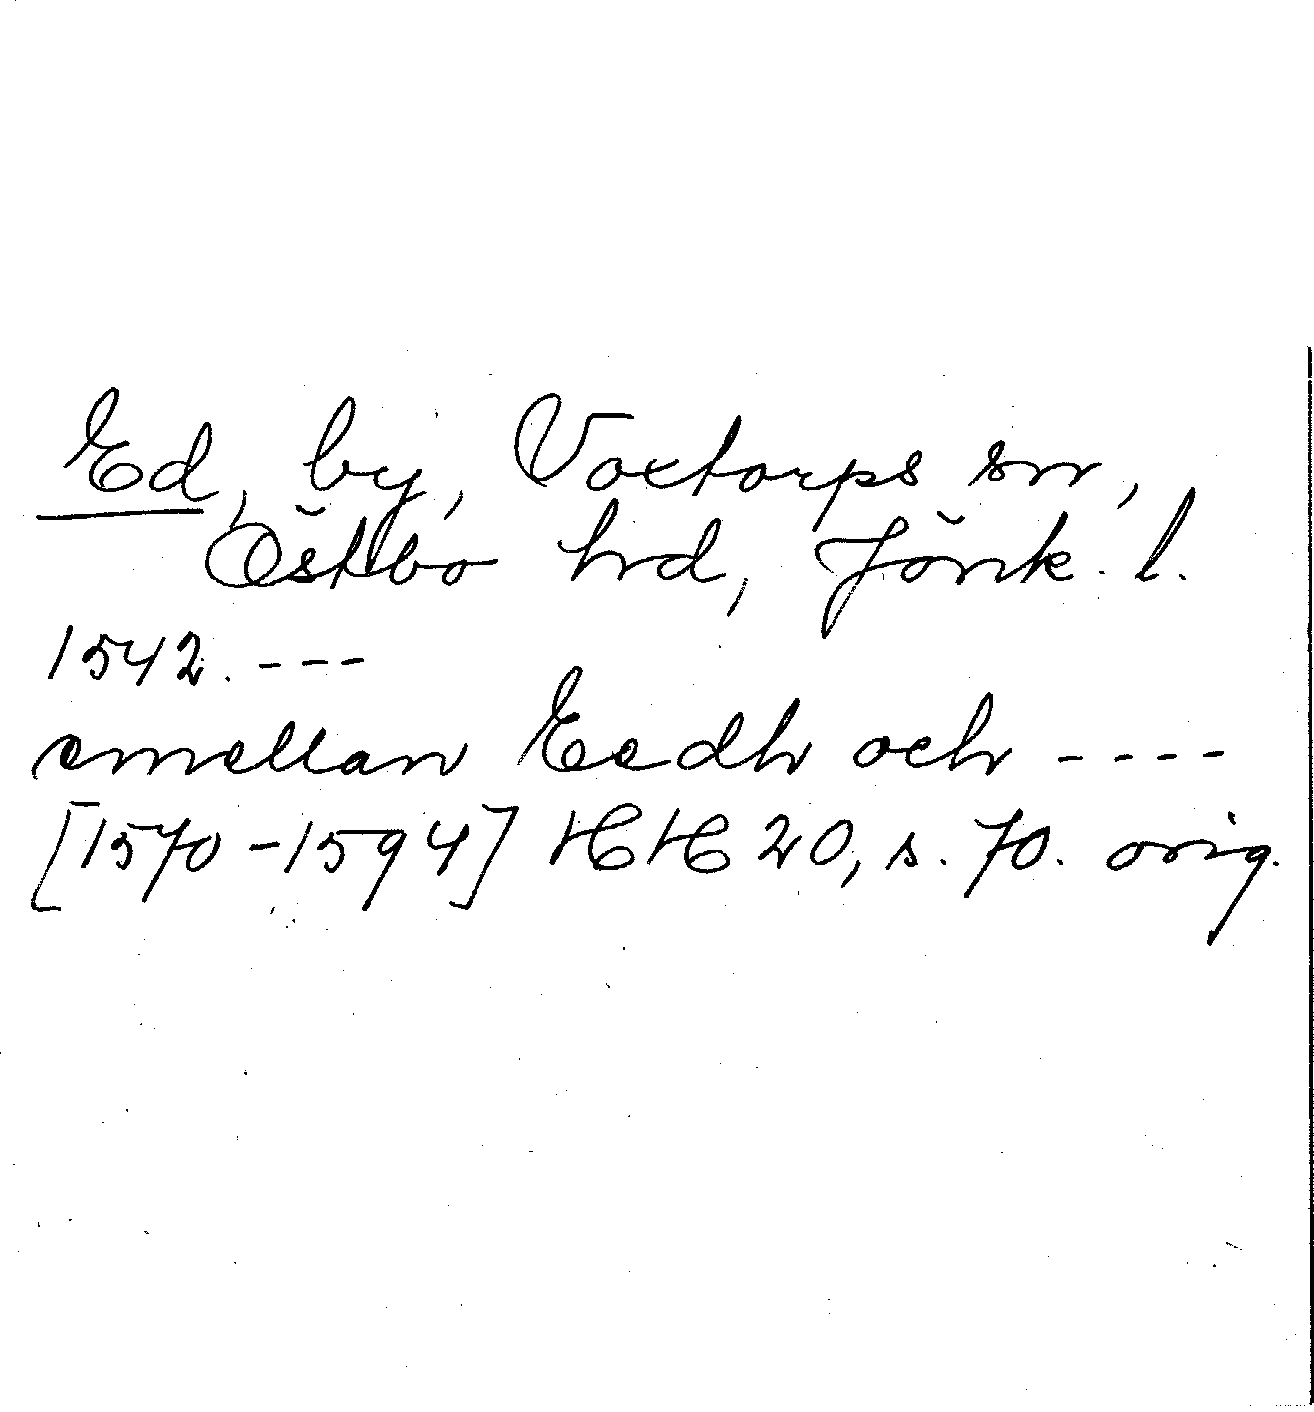 Ed, by, Voxtorps sn,
Östbo hd, Jönk. l.
1542. ---
emellan Eedh och ----
[1570-1594] HH 20, s. 70. orig.